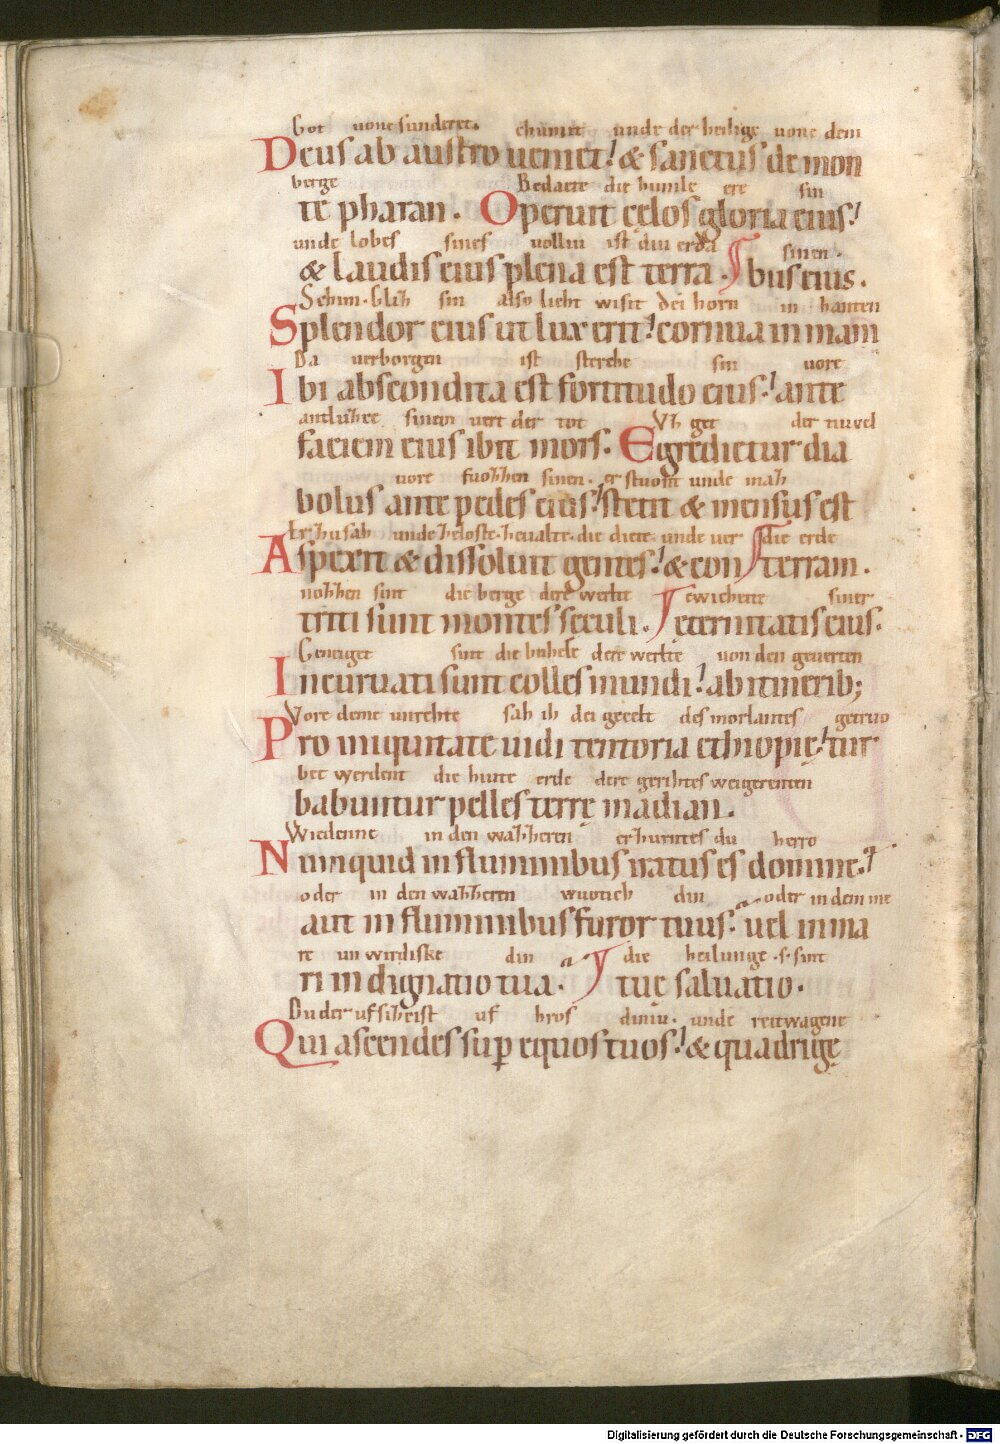 Got uone sunderet. chumet unde der heilige uone dem
Deus ab austro ueniet! & sanctus de mon
berge Bedacte die himile ere sin
te pharan. Operuit cęlos gloria eius!
unde lobes sines uolliu ist diu erda sinen.
& laudis eius plena est terra. bus eius.
Schim. sin also lieht wisit dei horn in hanten
Splendor eius ut lux erit! cornua in mani
Da uerborgen ist sterche sin uore
Ibi abscondita est fortitudo eius! ante
antluhze sinem uert der tot Vz get der tiuvel
faciem eius ibit mors. Egredietur dia
uore fuozzen sinen. er stuont unde maz
bolus ante pedes eius! stetit & mensus est
Er unde die diete. unde uer die erde
Aspexit & dissoluit gentes! & con terram.
nozzen sint die berge dere werlt ewichette siner
triti sunt montes sęculi. eternitatis eius.
Geneiget sint die buhele dere werlte von den geuerten
Incuruati sunt colles mundi! ab itinerib;
Vore deme unrehte sah ih dei gecelt des morlantes getruo
Pro iniquitate uidi tentoria ethiopię! tur
bet werdent die hute erde dere gerihtes weigerenten
babuntur pelles terrę madian.
Wiedenne in den wazzeren erzurntes du herro
Numquid in fluminibus iratus es domine!
oder in den wazzeren wuotich din oder in dem me
aut in fluminibus furor tuus. uel in ma
re un wirdiske din die heilunge .s. sint
ri indignatio tua. tuę saluatio.
Du der uf uf hros diniu. unde reitwagene
Qui ascendes sup equos tuos! & quadrigę
Digitalisierung gefördert durch die Deutsche Forschungsgemeinschaft - DFG